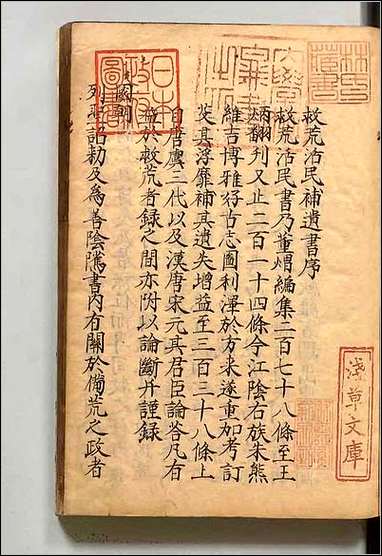 救荒活民補遺書序
救荒活民書乃董熠編集二百七十八條至王
炳翻刋又止二百一十四條今江陰右族朱熊
維吉博雅好古志圖利澤於方来遂重加考訂
芟其浮靡補其遺失增益至三百三十八條上
自唐虞三代以及漢唐宋元其君臣論荅凡有
益於救荒者録之間亦附以論斷并謹録
國朝
列聖詔勅及為善陰隲書内有關於備荒之政者
林氏藏書
日本政府圖書
淺草文庫